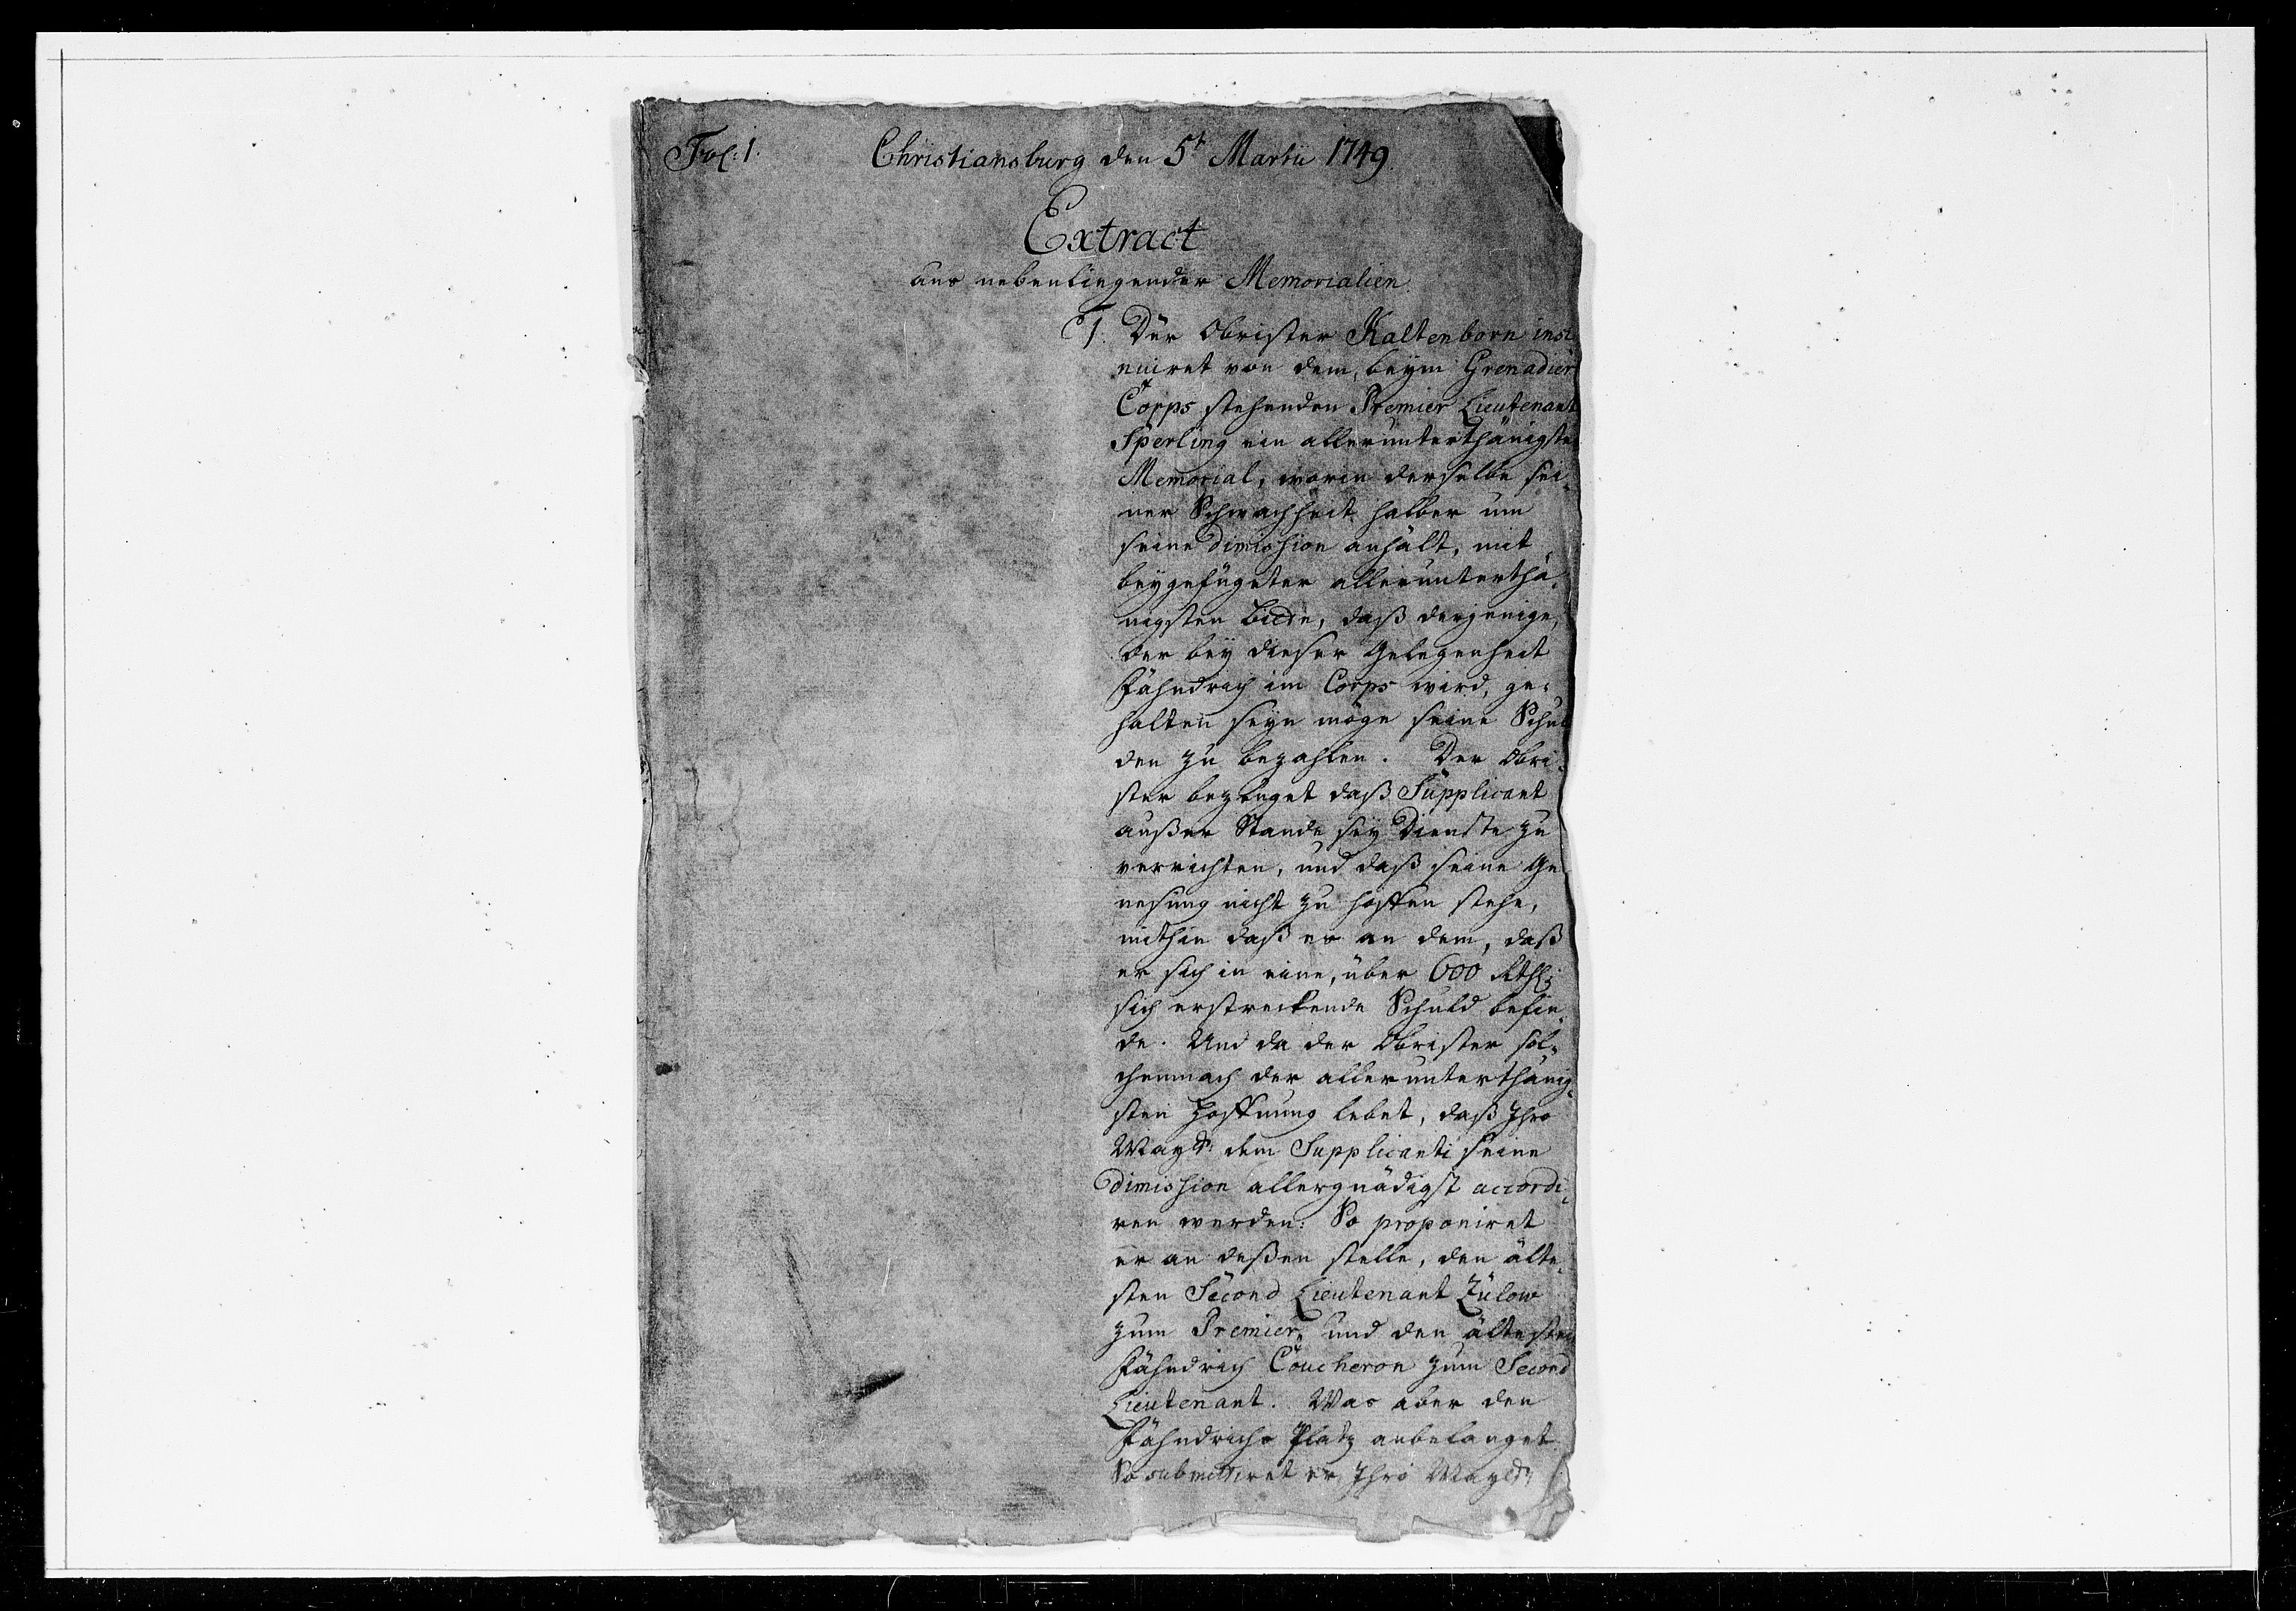 Fol: 1.
Christiansburg den 5t Martii 1749.
Extract
aus nebenliegender Memorialien.
1. Der Obrister Kaltenborn insi
nuiret von dem, beym Grenadier
Corps stehenden Premier Lieutenant
Sperling ein allerunterthänigstes
Memorial, worin derselbe sei¬
ner Schwachheit halber um
seine dimission anhält, mit
beygefügter allerunterthä¬
nigsten bitte, daß derjenige,
der bey dieser Gelegenheit
Fähndrich im Corps wird, ge¬
halten seyn möge seine Schul
den zu bezahlen. Der Obri¬
ster bezeuget daß Supplicant
außer Stande sey Dienste zu
verrichten, und daß seine Ge
nesung nicht zu hoffen stehe,
mithin daß es an dem, daß
er sich in eine, über 600 Rthl:
sich erstreckende Schuld befin¬
de. Und da der Obrister sol¬
chemnach der allerunterthänig¬
sten Hoffnung lebet, daß Ihro
Maytt: dem Supplicanti seine
dimission allergnädigst accordi¬
ren werden: So proponiret
er an deßen stelle, den älte¬
sten Second Lieutenant Zülow
zum Premier, und den ältesten
Fähndrich Coucheron zum Second
Lieutenant. Was aber den
Fähndrichs Platz anbelanget
So submittiret er, Ihro Maytt: